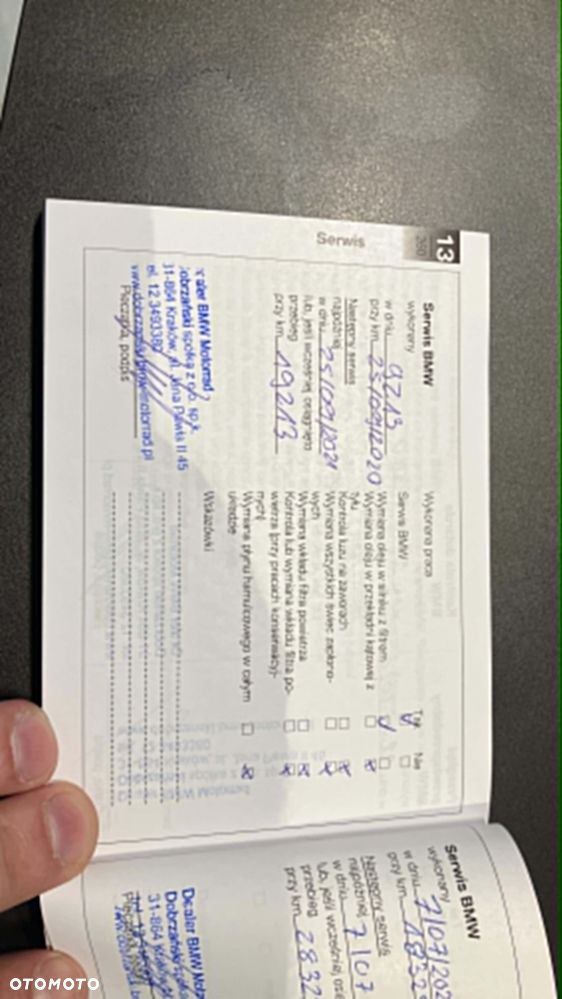 13
200
Serwis
Serwis BMW
wykonany
w dniu 9213
przy km 25/09/2020
Następny serwis
najpóźniej
w dniu 25/09/2021
lub, jeśli wcześniej osiągnięto
przebieg
przy km 19213
Dealer BMW Motorrad
Dobrzański spółka z o.o. sp.k.
31-864 Kraków, Al. Jana Pawła II 45
tel. 12 3493380
Pieczątka, podpis
Wykonana praca
Tak Nie
Serwis BMW
Wymiana oleju w silniku z filtrem
Wymiana oleju w przekładni kątowej z
tyłu
Kontrola luzu na zaworach
Wymiana wszystkich świec zapłono-
wych
Wymiana wkładu filtra powietrza
Kontrola lub wymiana wkładu filtra po-
wietrza (przy pracach konserwacyj-
nych)
Wymiana płynu hamulcowego w całym
układzie
Wskazówki
Serwis BMW
wykonany
w dniu 7/07/202
przy km 1832
Następny serwis
najpóźniej
w dniu 7/07
lub, jeśli wcześniej osi
przebieg
przy km 2832
Dealer BMW Moto
Dobrzański spółka
31-864 Kraków
OTOMOTO